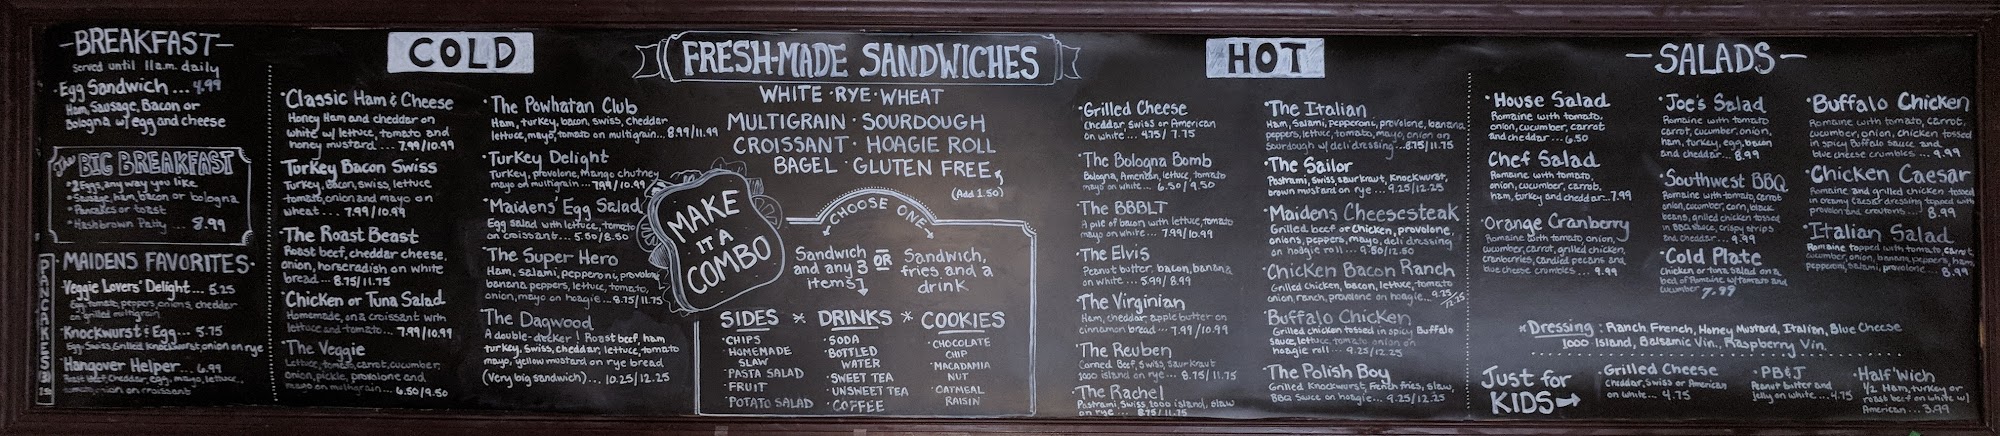 -BREAKFAST-
served until 11a.m. daily
·Egg Sandwich ... 4.99
Ham, Sausage, Bacon or
Bologna w/ egg and cheese
The BIG BREAKFAST
·2 Eggs, any way you like
·Sausage, ham, bacon or bologna
·Pancakes or toast
·Hashbrown Patty ... 8.99
·MAIDENS FAVORITES·
·Veggie Lovers' Delight... 5.25
Egg, tomato, peppers, onions, cheddar
on grilled multigrain
·Knockwurst & Egg... 5.75
Egg, Swiss, Grilled Knockwurst, onion on rye
·Hangover Helper... 6.99
Roast beef, cheddar, egg, mayo, lettuce,
on croissant
PANCAKES
COLD
·Classic Ham & Cheese
Honey Ham and cheddar on
white w/ lettuce, tomato and
honey mustard... 7.99/10.99
Turkey Bacon Swiss
Turkey, Bacon, swiss, lettuce
tomato, onion and mayo on
wheat... 7.99/10.99
·The Roast Beef
Roast beef, cheddar cheese,
onion, horseradish on white
bread... 8.75/11.75
·Chicken or Tuna Salad
Homemade, on a croissant with
lettuce and tomato... 7.99/10.99
·The Veggie
Lettuce, tomato, carrot, cucumber,
onion, pickle, provolone and
mayo on multigrain... 6.50/9.50
·The Powhatan Club
Ham, turkey, bacon, swiss, cheddar
lettuce, mayo, tomato on multigrain... 8.99/11.99
·Turkey Delight
Turkey, provolone, mango chutney
mayo on multigrain... 7.99/10.99
·Maidens' Egg Salad
Egg salad with lettuce, tomato
on croissant... 5.50/8.50
·The Super Hero
Ham, salami, pepperoni, provolone
banana peppers, lettuce, tomato,
onion, mayo on hoagie... 8.75/11.75
·The Dagwood
A double-decker! Roast beef, ham
turkey, swiss, cheddar, lettuce, tomato
mayo, yellow mustard on rye bread
(Very big sandwich)... 10.25/12.25
FRESH-MADE SANDWICHES
WHITE · RYE · WHEAT
MULTIGRAIN · SOURDOUGH
CROISSANT · HOAGIE ROLL
BAGEL · GLUTEN FREE
(Add 1.50)
MAKE
IT A
COMBO
CHOOSE ONE
Sandwich
and any 3
items
OR
Sandwich,
fries, and a
drink
SIDES * DRINKS * COOKIES
·CHIPS
·HOMEMADE
SLAW
·PASTA SALAD
·FRUIT
·POTATO SALAD
·SODA
·BOTTLED
WATER
·SWEET TEA
·UNSWEET TEA
·COFFEE
·CHOCOLATE
CHIP
·MACADAMIA
NUT
·OATMEAL
RAISIN
HOT
·Grilled Cheese
Cheddar, Swiss or American
on white... 4.75/7.75
·The Bologna Bomb
Bologna, American, lettuce, tomato
mayo on white... 6.50/9.50
·The BBBLT
A pile of bacon with lettuce, tomato
mayo on white... 7.99/10.99
·The Elvis
Peanut butter, bacon, banana
on white... 5.99/8.99
·The Virginian
Ham, cheddar, apple butter on
cinnamon bread... 7.99/10.99
·The Reuben
Corned Beef, Swiss, saurkraut
1000 island on rye... 8.75/11.75
·The Rachel
Pastrami, Swiss, 1000 island, slaw
on rye... 8.75/11.75
·The Italian
Ham, Salami, Pepperoni, provolone, banana
peppers, lettuce, tomato, mayo, onion on
Sourdough w/ deli dressing... 8.75/11.75
·The Sailor
Pastrami, Swiss, saurkraut, Knockwurst,
brown mustard on rye... 9.25/12.25
·Maidens Cheesesteak
Grilled beef or Chicken, provolone,
onions, peppers, mayo, deli dressing
on hoagie roll... 9.50/12.50
·Chicken Bacon Ranch
Grilled Chicken, bacon, lettuce, tomato
onion, ranch, provolone on hoagie... 9.25/12.25
·Buffalo Chicken
Grilled chicken tossed in spicy Buffalo
Sauce, lettuce, tomato, onion on
hoagie roll... 9.25/12.25
·The Polish Boy
Grilled Knockwurst, French fries, slaw,
BBQ Sauce on hoagie... 9.25/12.25
-SALADS-
·House Salad
Romaine with tomato,
onion, cucumber, carrot
and cheddar... 6.50
·Chef Salad
Romaine with tomato,
onion, cucumber, carrot,
ham, turkey and cheddar... 7.99
·Orange Cranberry
Romaine with tomato, onion,
cucumber, carrot, grilled chicken
cranberries, candied pecans and
blue cheese crumbles... 9.99
·Joe's Salad
Romaine with tomato,
carrot, cucumber, onion,
ham, turkey, egg, bacon
and cheddar... 8.99
·Southwest BBQ
Romaine with tomato, carrot
onion, cucumber, corn, black
beans, grilled chicken tossed
in BBQ sauce, crispy strips
and cheddar... 9.99
·Cold Plate
Chicken or tuna salad on a
bed of Romaine w/ tomato and
cucumber 7.99
·Buffalo Chicken
Romaine with tomato, carrot,
cucumber, onion, chicken tossed
in spicy Buffalo sauce and
blue cheese crumbles... 9.99
·Chicken Caesar
Romaine and grilled chicken tossed
in creamy Caesar dressing topped with
provolone and croutons... 8.99
·Italian Salad
Romaine topped with tomato, carrot,
cucumber, onion, banana peppers, ham
pepperoni, salami, provolone... 8.99
*Dressing: Ranch, French, Honey Mustard, Italian, Blue Cheese
1000 Island, Balsamic Vin., Raspberry Vin.
Just for
KIDS→
·Grilled Cheese
Cheddar, Swiss or American
on white... 4.75
·PB&J
Peanut butter and
jelly on white... 4.75
·Half 'Wich
1/2 Ham, turkey or
roast beef on white w/
American... 3.99